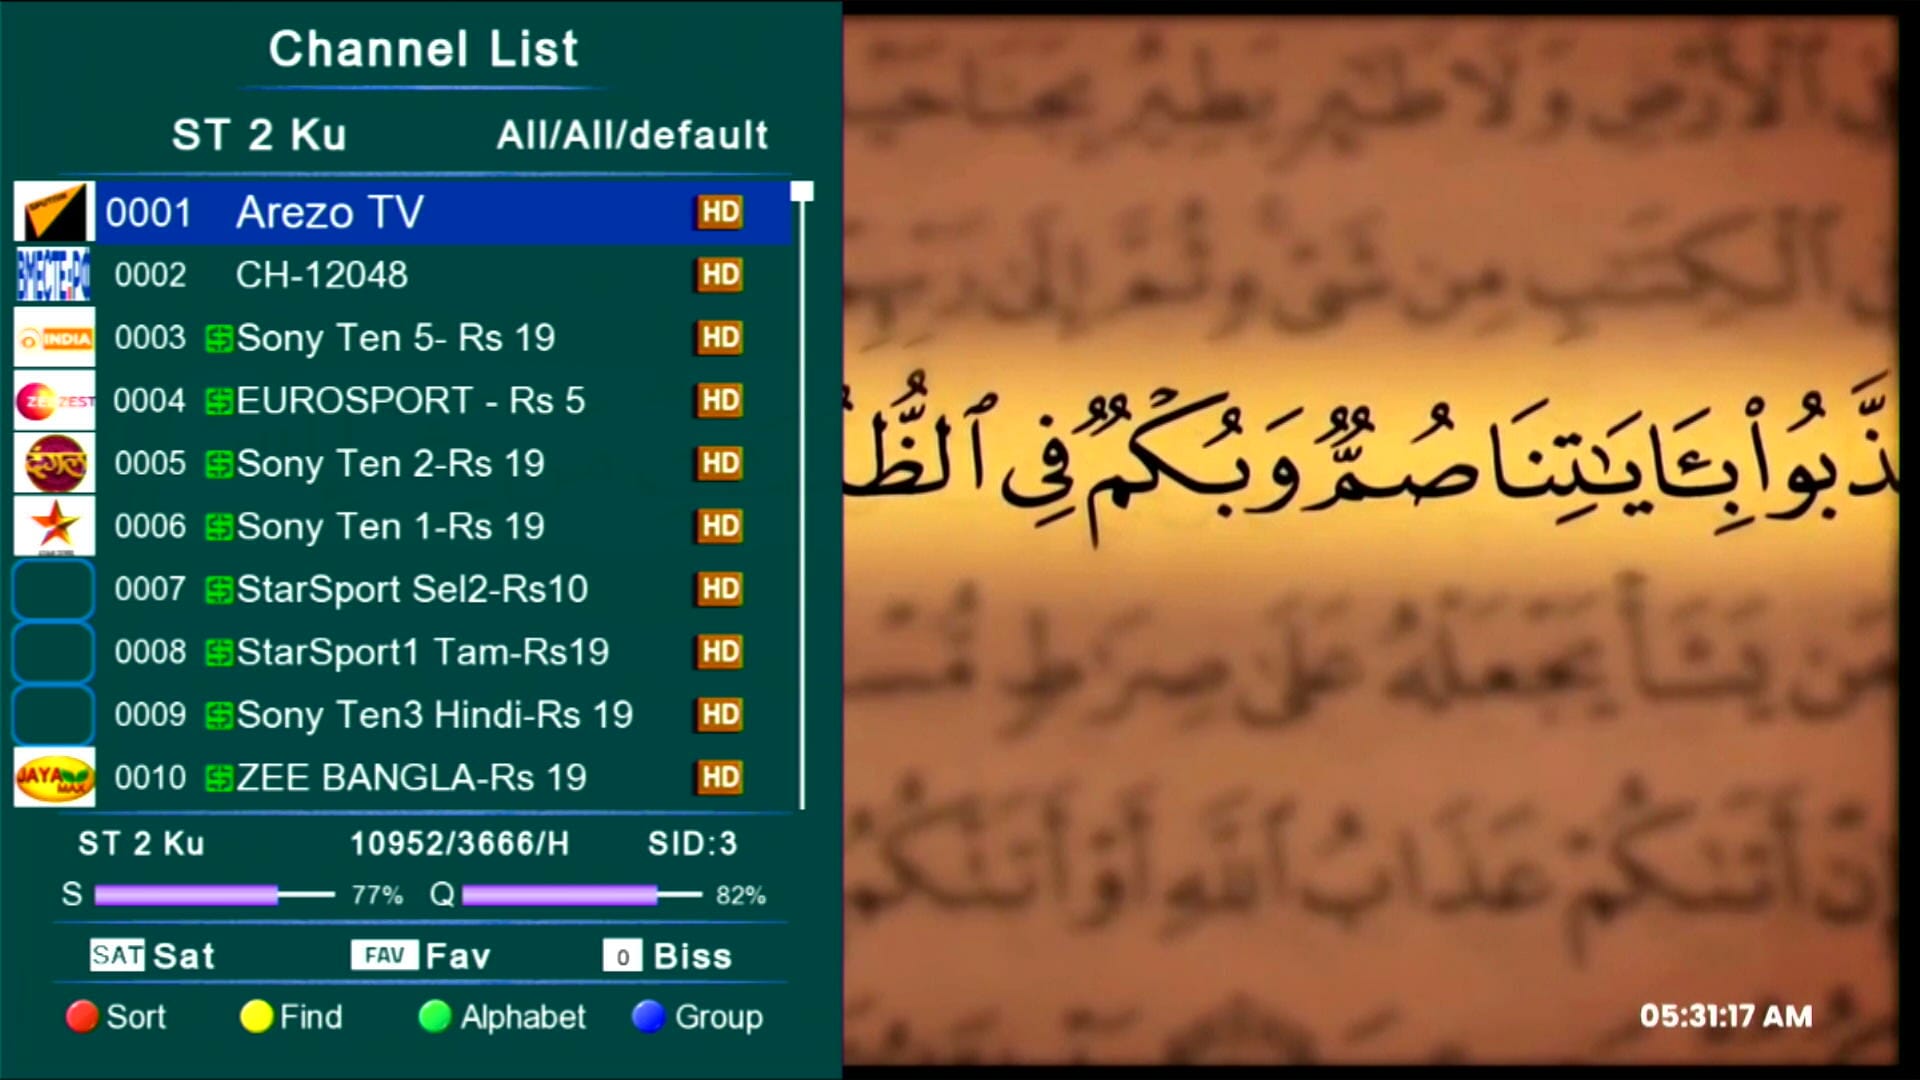 Channel List
ST 2 Ku All/All/default
SPUTNIK 0001 Arezo TV HD
0002 CH-12048 HD
INDIA 0003 $ Sony Ten 5- Rs 19 HD
ZEE ZEST 0004 $ EUROSPORT - Rs 5 HD
दंगल 0005 $ Sony Ten 2-Rs 19 HD
0006 $ Sony Ten 1-Rs 19 HD
0007 $ StarSport Sel2-Rs10 HD
0008 $ StarSport1 Tam-Rs19 HD
0009 $ Sony Ten3 Hindi-Rs 19 HD
JAYA MAX 0010 $ ZEE BANGLA-Rs 19 HD
ST 2 Ku 10952/3666/H SID:3
S 77% Q 82%
SAT Sat FAV Fav 0 Biss
Sort Find Alphabet Group
ٱلْأَرْضِ وَلَا طَٰٓئِرٍ يَطِيرُ
ٱلْكِتَٰبِ مِن شَىْءٍ ثُمَّ إِلَىٰ رَبِّهِمْ
بُوا۟ بِـَٔايَٰتِنَا صُمٌّ وَبُكْمٌ فِى
يَشَأْ يَجْعَلْهُ عَلَىٰ صِرَٰطٍ
أَتَىٰكُمْ عَذَابُ ٱللَّهِ أَوْ
05:31:17 AM